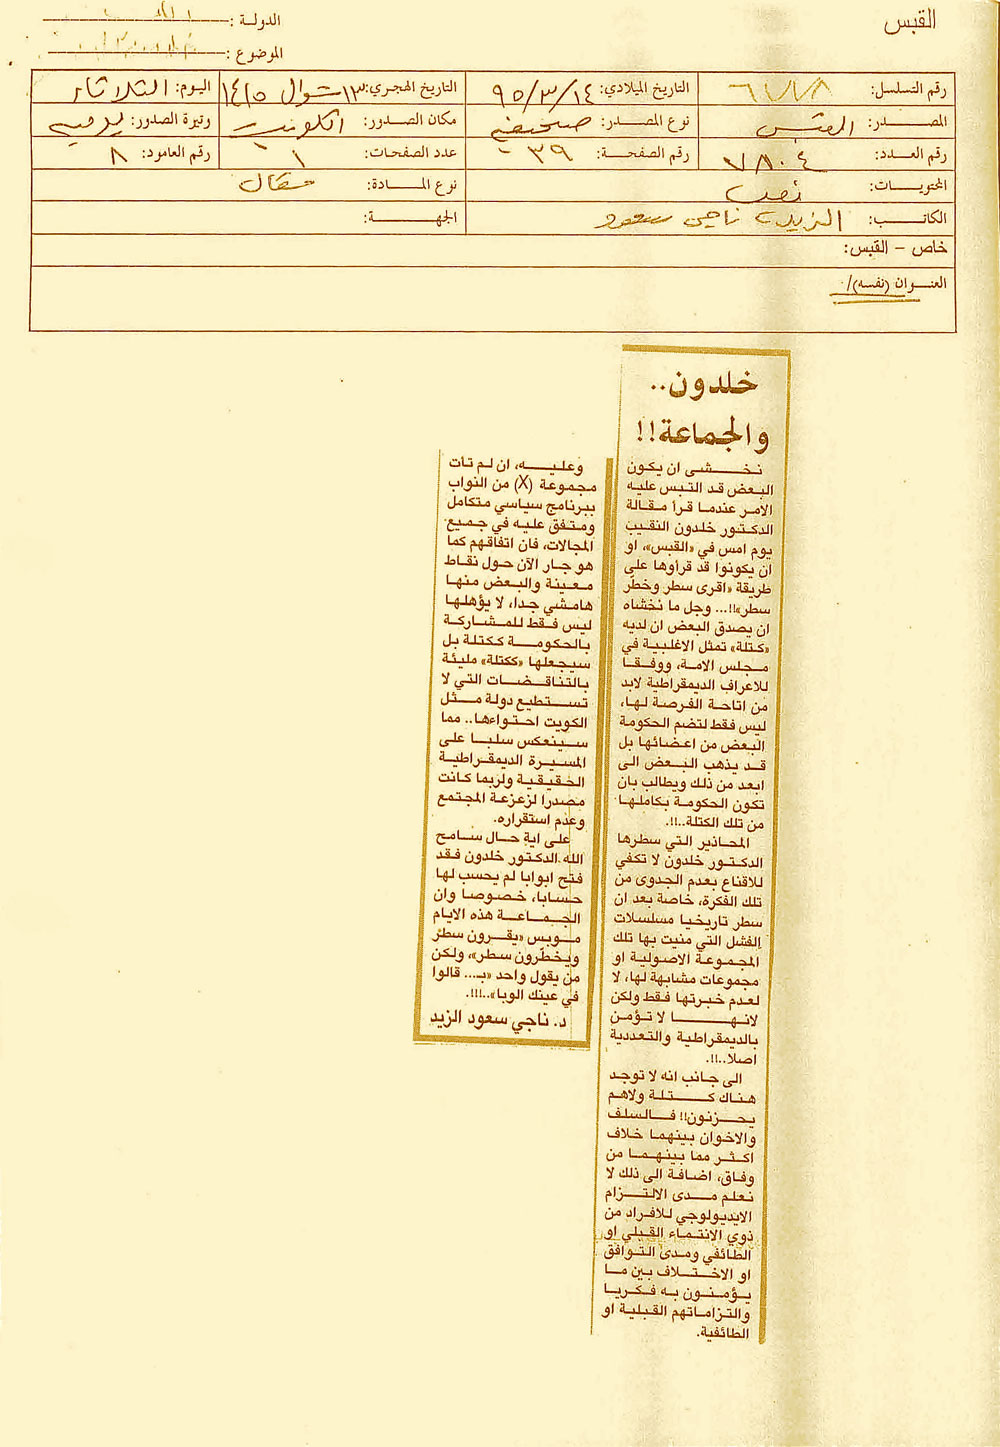 القبس
الدولة :
الموضوع :
رقم التسلسل: ٦٧٧٨ التاريخ الميلادي: ٩٥/٣/١٤ التاريخ الهجري: ١٣ شوال ١٤١٥ اليوم: الثلاثاء
المصدر: القبس نوع المصدر: صحيفة مكان الصدور: الكويت وتيرة الصدور: يومية
رقم العدد: ٧٨٠٤ رقم الصفحة: ٣٩ عدد الصفحات: ١ رقم العامود: ٨
المحتويات: نص نوع المادة: مقال
الكاتب: الزيد، ناجي سعود الجهة:
خاص - القبس:
العنوان (نفسه)/.
خلدون..
والجماعة!!
نخشى ان يكون
البعض قد التبس عليه
الامر عندما قرأ مقالة
الدكتور خلدون النقيب
يوم امس في «القبس»، او
ان يكونوا قد قرأوها على
طريقة «اقرى سطر وخطّر
سطر»!!... وجل ما نخشاه
ان يصدق البعض ان لديه
«كتلة» تمثل الاغلبية في
مجلس الامة، ووفقا
للاعراف الديمقراطية لابد
من اتاحة الفرصة لها،
ليس فقط لتضم الحكومة
البعض من اعضائها بل
قد يذهب البعض الى
ابعد من ذلك ويطالب بان
تكون الحكومة بكاملها
من تلك الكتلة..!!.
المحاذير التي سطرها
الدكتور خلدون لا تكفي
للاقناع بعدم الجدوى من
تلك الفكرة، خاصة بعد ان
سطر تاريخيا مسلسلات
الفشل التي منيت بها تلك
المجموعة الاصولية او
مجموعات مشابهة لها، لا
لعدم خبرتها فقط ولكن
لانها لا تؤمن
بالديمقراطية والتعددية
اصلا..!!.
الى جانب انه لا توجد
هناك كتلة ولاهم
يحزنون!! فالسلف
والاخوان بينهما خلاف
اكثر مما بينهما من
وفاق، اضافة الى ذلك لا
نعلم مدى الالتزام
الايديولوجي للافراد من
ذوي الانتماء القبلي او
الطائفي ومدى التوافق
او الاختلاف بين ما
يؤمنون به فكريا
والتزاماتهم القبلية او
الطائفية.
وعليه، ان لم تأت
مجموعة (X) من النواب
ببرنامج سياسي متكامل
ومتفق عليه في جميع
المجالات، فان اتفاقهم كما
هو جار الآن حول نقاط
معينة والبعض منها
هامشي جدا، لا يؤهلها
ليس فقط للمشاركة
بالحكومة ككتلة بل
سيجعلها «ككتلة» مليئة
بالتناقضات التي لا
تستطيع دولة مثل
الكويت احتواءها.. مما
سينعكس سلبا على
المسيرة الديمقراطية
الحقيقية ولربما كانت
مصدرا لزعزعة المجتمع
وعدم استقراره.
على اية حال سامح
الله الدكتور خلدون فقد
فتح ابوابا لم يحسب لها
حسابا، خصوصا وان
الجماعة هذه الايام
موبس «يقرون سطر
ويخطّرون سطر»، ولكن
من يقول واحد «بـ... قالوا
في عينك الوبا»..!!!.
د. ناجي سعود الزيد